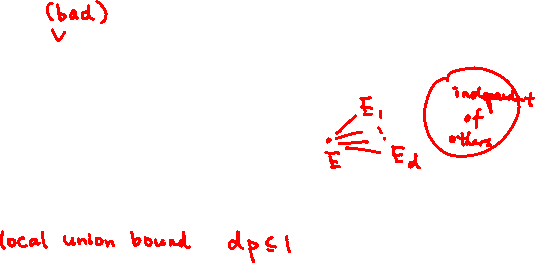 (bad)
E1
E
Ed
independent
of
others
local union bound dp ≤ 1